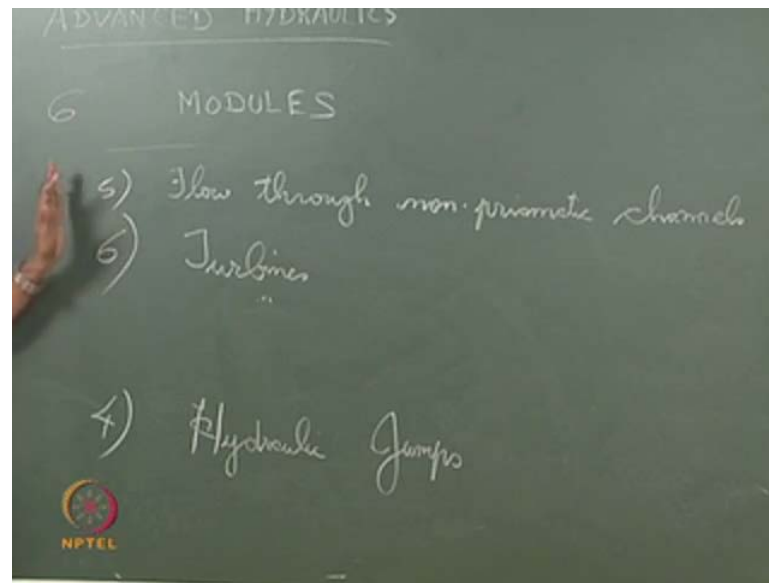 ADVANCED HYDRAULICS
6 MODULES
5) Flow through non-prismatic channels
6) Turbines
4) Hydraulic Jumps
NPTEL